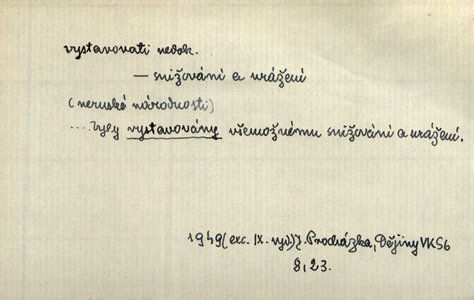 vystavovati nedok.
— snižování a urážení
(neruské národnosti)
....byly vystavovány všemožnému snižování a urážení.
1949(exc. IX. vyd.) J. Procházka, Dějiny VKSb
8,23.